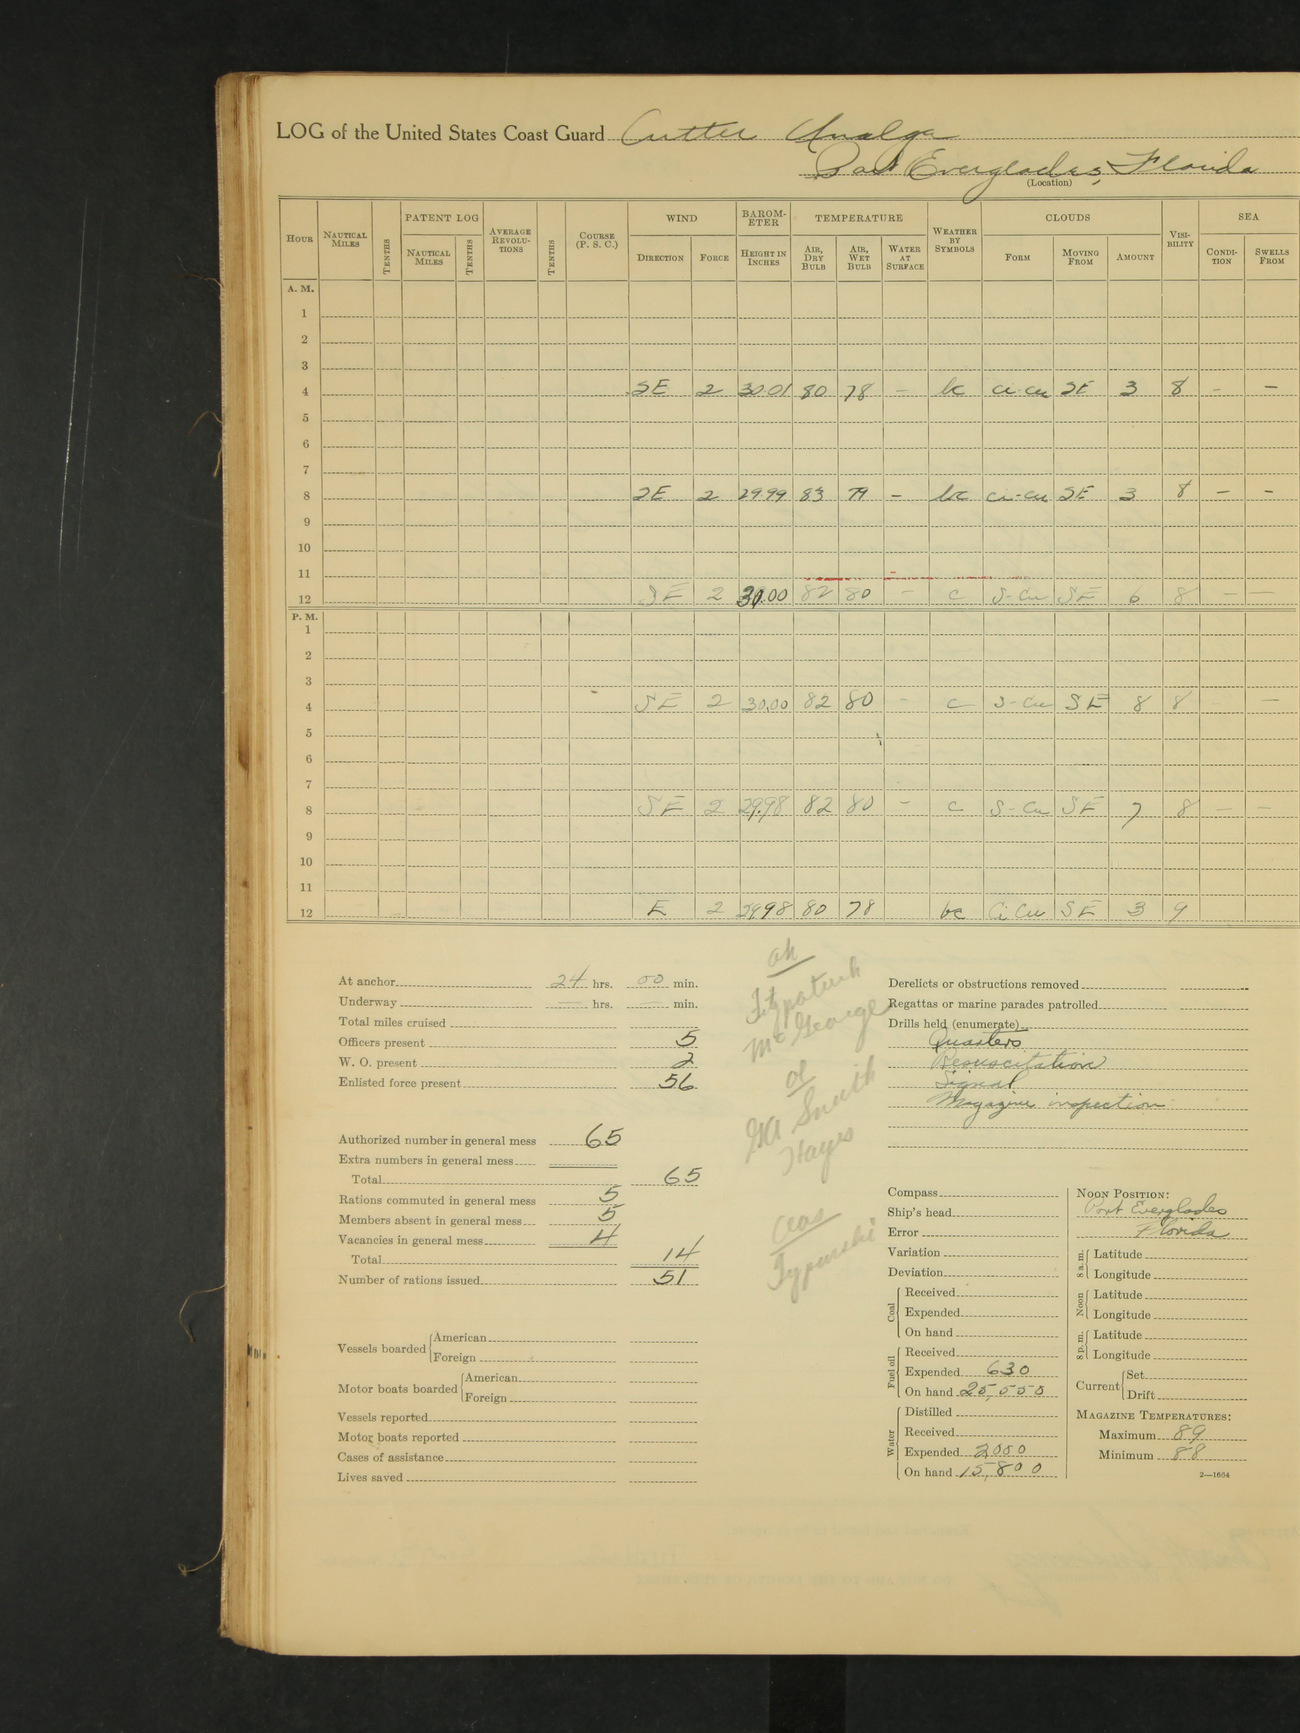 LOG of the United States Coast Guard Cutter Unalga
Port Everglades, Florida
(Location)
HOUR NAUTICAL MILES TENTHS PATENT LOG NAUTICAL MILES TENTHS AVERAGE REVOLUTIONS TENTHS COURSE (P. S. C.) WIND DIRECTION FORCE BAROMETER HEIGHT IN INCHES TEMPERATURE AIR, DRY BULB AIR, WET BULB WATER AT SURFACE WEATHER BY SYMBOLS CLOUDS FORM MOVING FROM AMOUNT VISIBILITY SEA CONDITION SWELLS FROM
A. M.
1
2
3
4 SE 2 30.01 80 78 - bc ci-cu SE 3 8 - -
5
6
7
8 SE 2 29.99 83 79 - bc ci-cu SE 3 8 - -
9
10
11
12 SE 2 30.00 82 80 - c S-Cu SE 6 8 - -
P. M.
1
2
3
4 SE 2 30.00 82 80 - c S-Cu SE 8 8 -
5
6
7
8 SE 2 29.98 82 80 - c S-Cu SE 7 8 - -
9
10
11
12 E 2 29.98 80 78 bc Ci Cu SE 3 9
At anchor 24 hrs. 00 min.
Underway — hrs. — min.
Total miles cruised
Officers present 5
W. O. present 2
Enlisted force present 56
Authorized number in general mess 65
Extra numbers in general mess
Total 65
Rations commuted in general mess 5
Members absent in general mess 5
Vacancies in general mess 4
Total 14
Number of rations issued 51
Vessels boarded American
Foreign
Motor boats boarded American
Foreign
Vessels reported
Motor boats reported
Cases of assistance
Lives saved
Fitzpatrick
McGeorge
Smith
Hayes
Derelicts or obstructions removed
Regattas or marine parades patrolled
Drills held (enumerate)
Quarters
Resuscitation
Signal
Magazine inspection
Compass
Ship's head
Error
Variation
Deviation
Coal Received
Expended
On hand
Fuel oil Received
Expended 630
On hand 25,550
Water Distilled
Received
Expended 2000
On hand 15,800
NOON POSITION:
Port Everglades
Florida
8 a. m. Latitude
Longitude
Noon Latitude
Longitude
8 p. m. Latitude
Longitude
Current Set
Drift
MAGAZINE TEMPERATURES:
Maximum 89
Minimum 88
2—1664